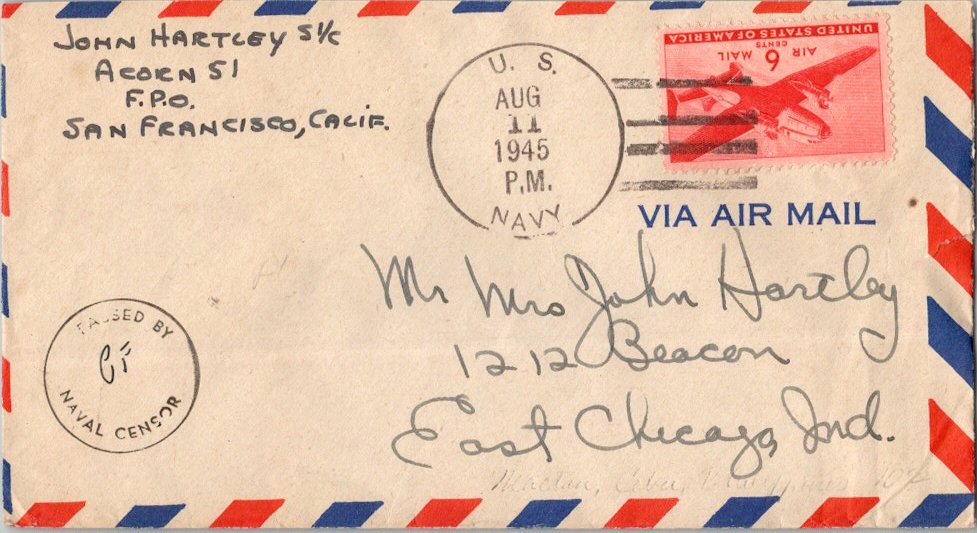 JOHN HARTLEY S1/C
ACORN 51
F.P.O.
SAN FRANCISCO, CALIF.
U. S.
AUG
11
1945
P.M.
NAVY
UNITED STATES OF AMERICA
6 CENTS
AIR MAIL
VIA AIR MAIL
Mr Mrs John Hartley
1212 Beacon
East Chicago, Ind.
PASSED BY
CF
NAVAL CENSOR
Mactan, Cebu, Philippines